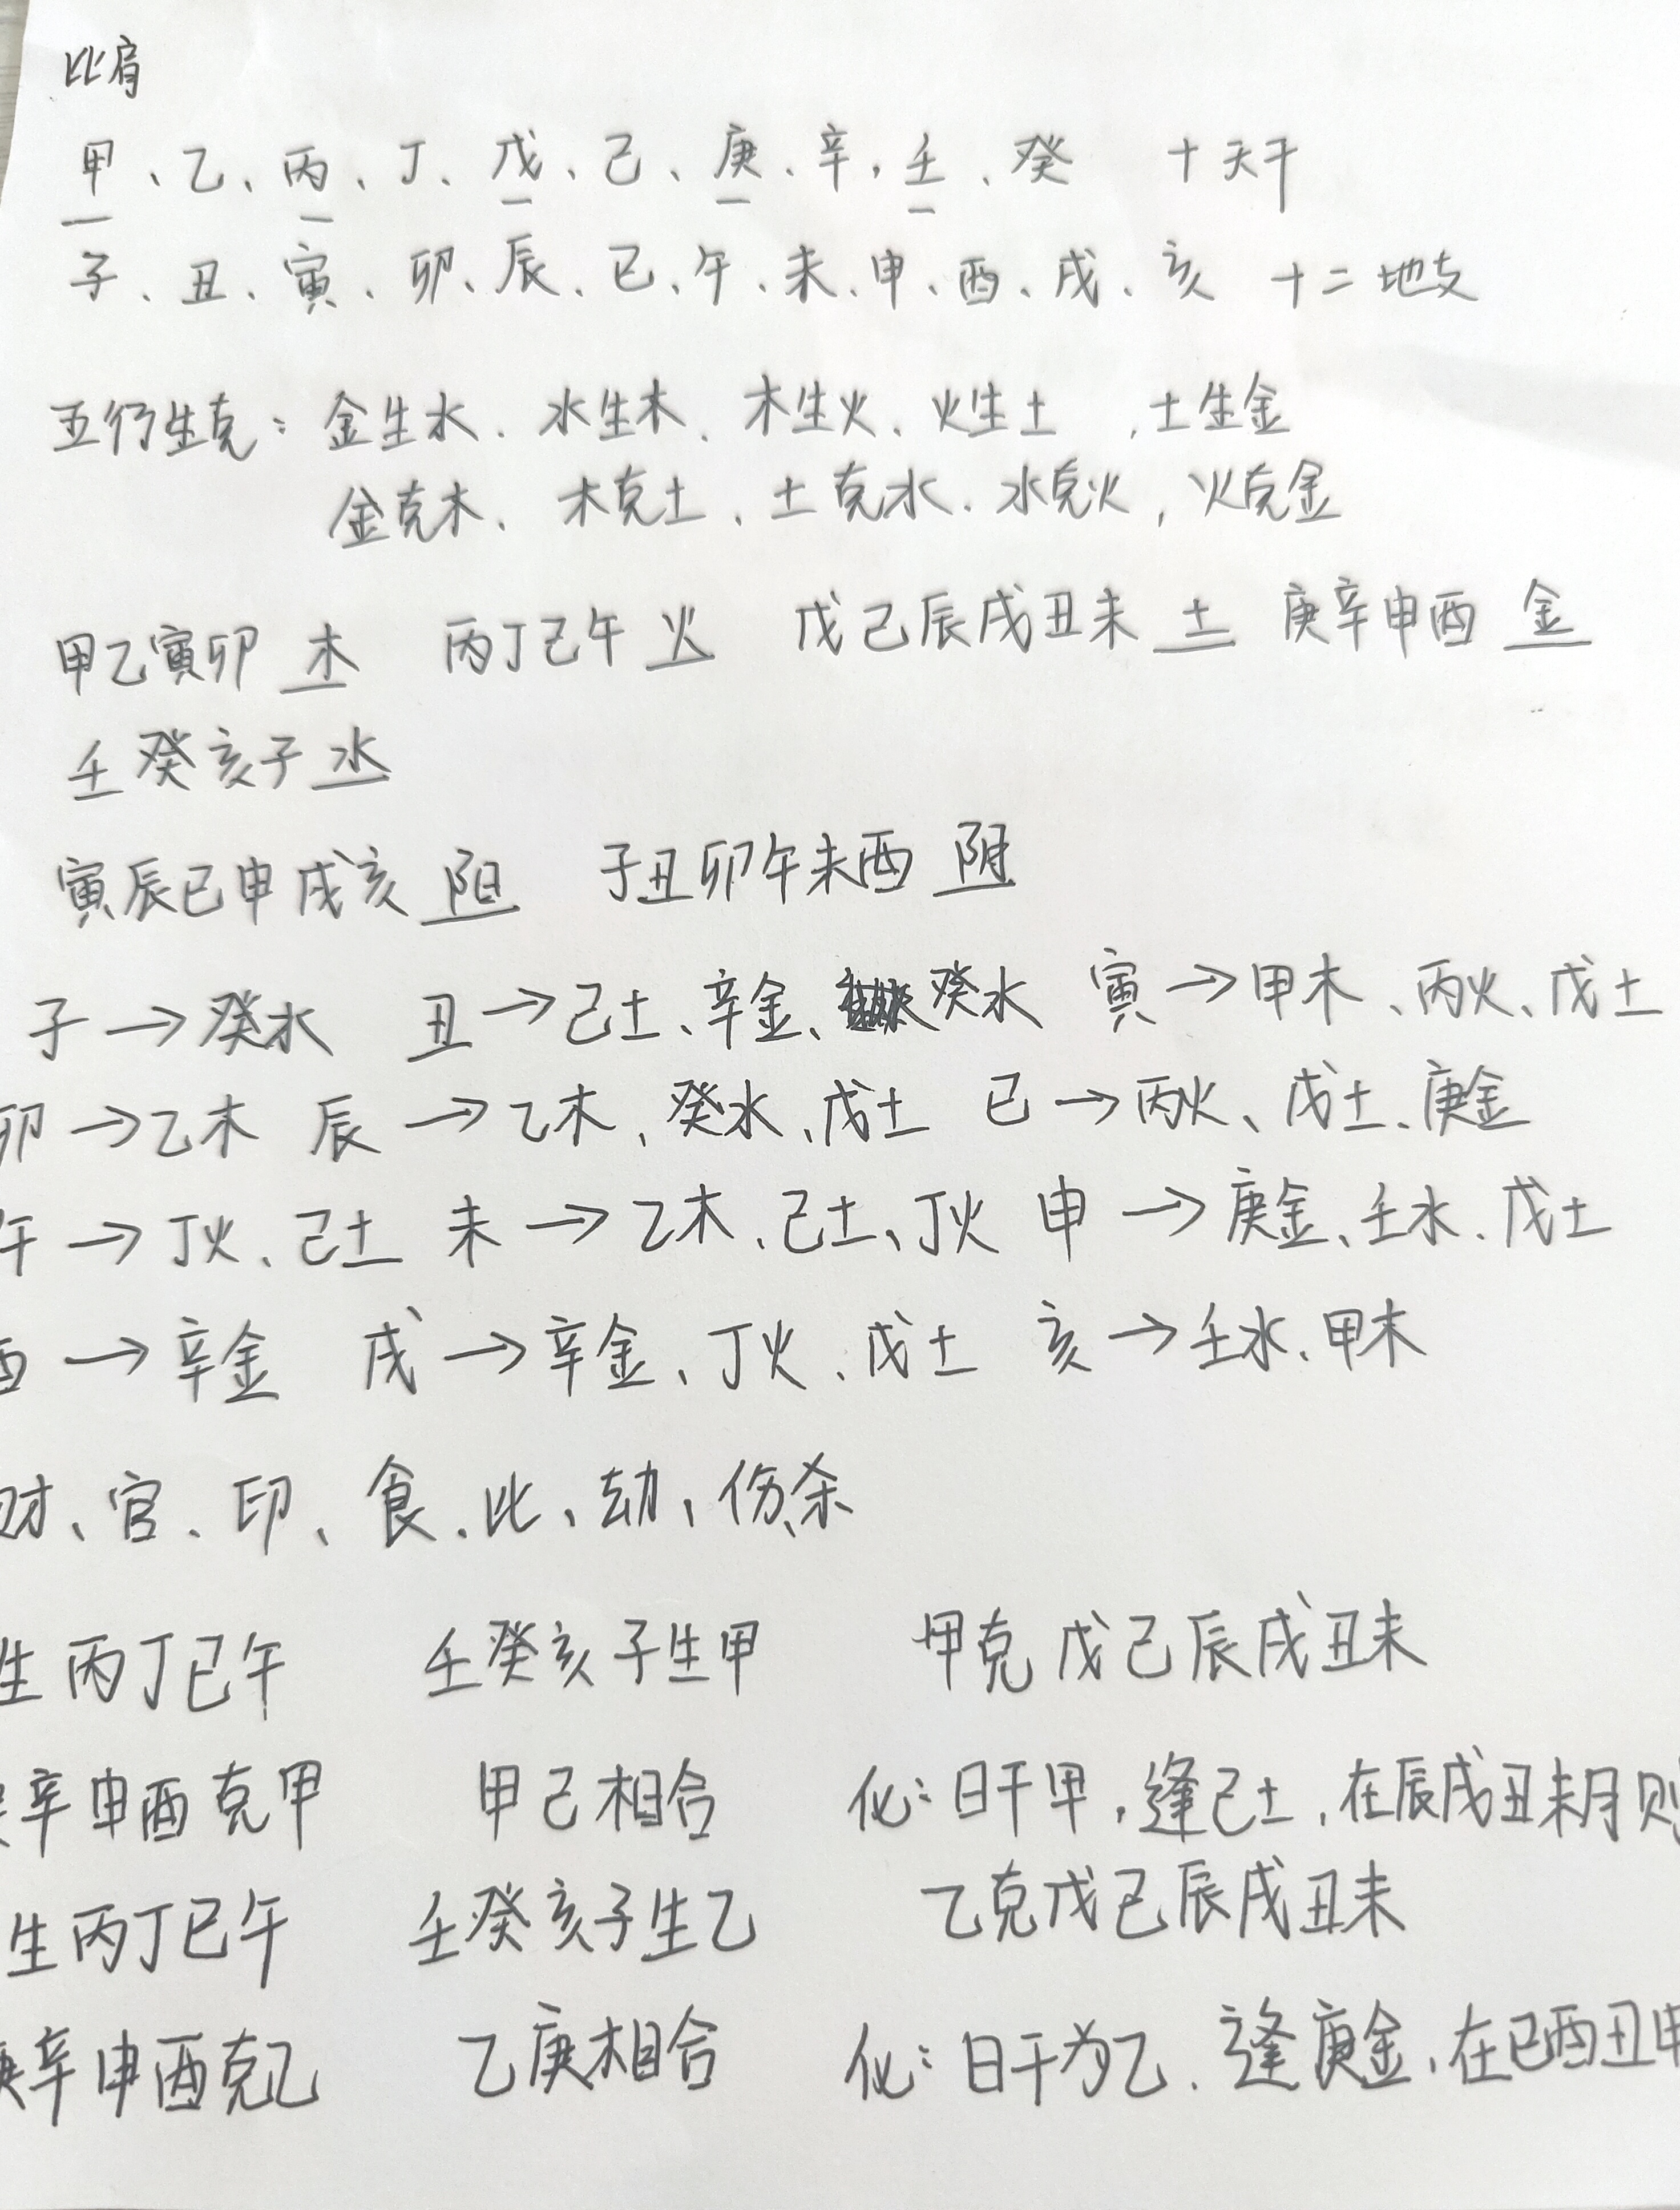 比肩
甲、乙、丙、丁、戊、己、庚、辛、壬、癸 十天干
子、丑、寅、卯、辰、巳、午、未、申、酉、戌、亥 十二地支
五行生克:金生水、水生木、木生火、火生土,土生金
金克木、木克土、土克水、水克火,火克金
甲乙寅卯 木 丙丁巳午 火 戊己辰戌丑未 土 庚辛申酉 金
壬癸亥子 水
寅辰巳申戌亥 阳 子丑卯午未酉 阴
子→癸水 丑→己土、辛金、癸水 寅→甲木、丙火、戊土
卯→乙木 辰→乙木、癸水、戊土 巳→丙火、戊土、庚金
午→丁火、己土 未→乙木、己土、丁火 申→庚金、壬水、戊土
酉→辛金 戌→辛金、丁火、戊土 亥→壬水、甲木
财、官、印、食、比、劫、伤、杀
生丙丁巳午 壬癸亥子生甲 甲克戊己辰戌丑未
辛申酉克甲 甲己相合 化:日干甲,逢己土,在辰戌丑未月则
生丙丁巳午 壬癸亥子生乙 乙克戊己辰戌丑未
庚辛申酉克乙 乙庚相合 化:日干为乙、逢庚金,在巳酉丑申